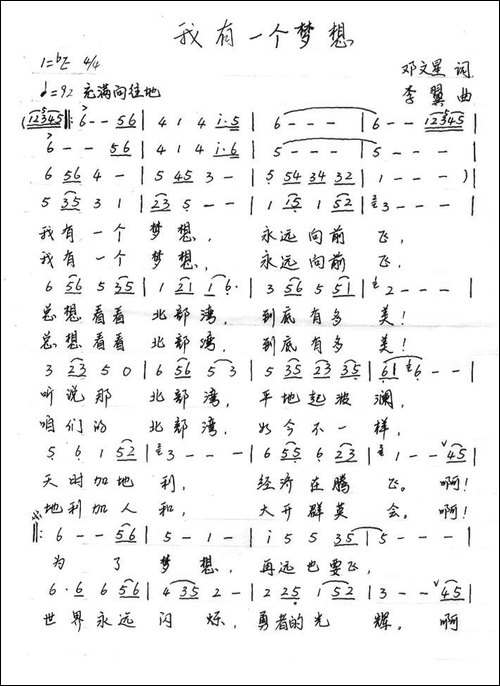 我有一个梦想
1=♭E 4/4
邓文星 词
♩=92 充满向往地
李翼 曲
(12345 ‖: 6 - - 56 | 4 1 4 i·5 | 6 - - - | 6 - - 12345 |
6 - - 56 | 4 1 4 i·6 | 5 - - - | 5 - - - |
6 56 4 - | 5 45 3 - | 5 54 34 32 | 1 - - - )|
5 35 3 1 | 23 5 - - | 1 15 1 52 | 3 - - - |
我有一个 梦想， 永远向前 飞，
我有一个 梦想， 永远向前 飞．
6 56 5 35 | 1 21 1 6· | 3 56 5 51 | 2 - - - |
总想看看 北部湾， 到底有多 美！
总想看看 北部湾， 到底有多 美！
3 23 5 0 | 6 56 5 3 | 5 35 23 35 | 61 6 - - |
听说那 北部湾， 平地起波 澜，
咱们的 北部湾， 如今不一 样，
5 6 1 52 | 3 - - - | 6 55 6 23 | 1 - - 45 |
天时加地 利， 经济在腾 飞。啊！
地利加人 和， 大开群英 会。啊！
‖: 6 - - 56 | 5 - 1 - | i 5 5 35 | 5 - - - |
为 了 梦想， 再远也要飞，
6· 6 6 56 | 4 35 2 - | 2 25 1 52 | 3 - - 45 |
世界永远 闪 烁， 勇者的光 辉， 啊